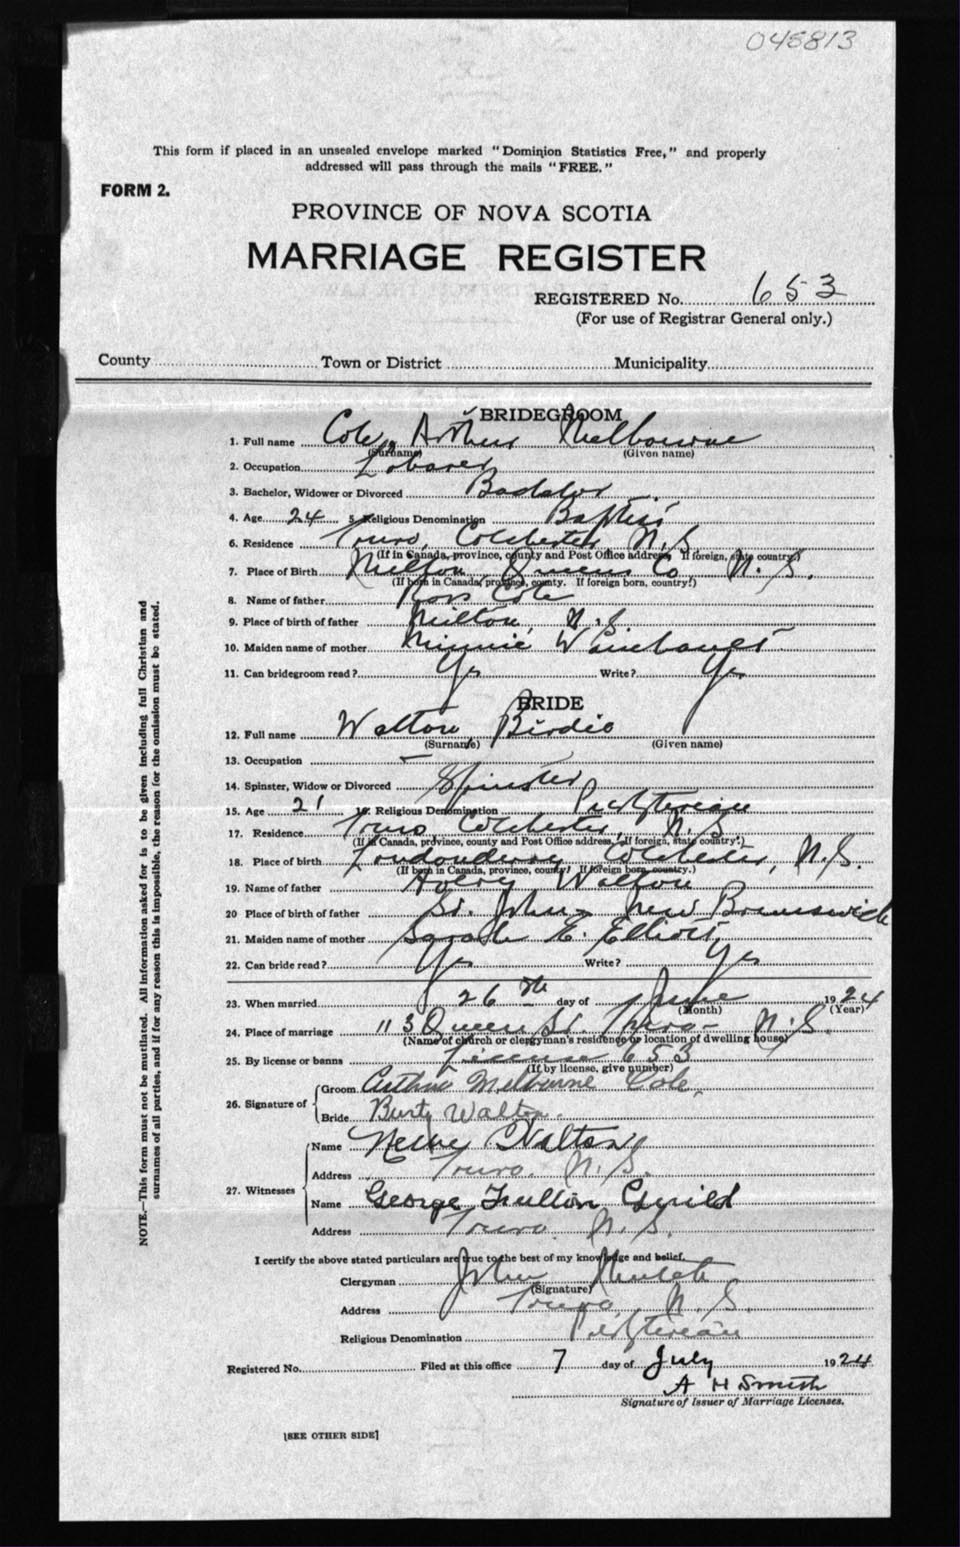 045813
This form if placed in an unsealed envelope marked "Dominion Statistics Free," and properly
addressed will pass through the mails "FREE."
FORM 2.
PROVINCE OF NOVA SCOTIA
MARRIAGE REGISTER
REGISTERED No. 653
(For use of Registrar General only.)
County Town or District Municipality
BRIDEGROOM
1. Full name Cole, Arthur Melbourne
(Surname) (Given name)
2. Occupation Laborer
3. Bachelor, Widower or Divorced Bachelor
4. Age 24 5. Religious Denomination Baptist
6. Residence Truro, Colchester, N.S.
(If in Canada, province, county and Post Office address. If foreign, state country.)
7. Place of Birth Milton Queens Co N.S.
(If born in Canada, province, county. If foreign born, country.)
8. Name of father Ross Cole
9. Place of birth of father Milton, N.S.
10. Maiden name of mother Minnie
11. Can bridegroom read? Yes Write? Yes
BRIDE
12. Full name Walton Birdie
(Surname) (Given name)
13. Occupation —
14. Spinster, Widow or Divorced Spinster
15. Age 21 16. Religious Denomination Presbyterian
17. Residence Truro Colchester, N.S.
(If in Canada, province, county and Post Office address. If foreign, state country.)
18. Place of birth Londonderry Colchester, N.S.
(If born in Canada, province, county. If foreign born, country.)
19. Name of father Avery Walton
20 Place of birth of father St. John, New Brunswick
21. Maiden name of mother Sarah E. Elliott
22. Can bride read? Yes Write? Yes
23. When married 26th day of June 1924
(Month) (Year)
24. Place of marriage 113 Queen St. Truro - N.S.
(Name of church or clergyman's residence or location of dwelling house)
25. By license or banns License 653
(If by license, give number)
26. Signature of
Groom Arthur Melbourne Cole
Bride Walton
27. Witnesses
Name Walton
Address Truro. N.S.
Name George Fulton
Address Truro. N.S.
I certify the above stated particulars are true to the best of my knowledge and belief.
Clergyman John
(Signature)
Address Truro, N.S.
Religious Denomination Presbyterian
Registered No. Filed at this office 7 day of July 1924
A H Smith
Signature of Issuer of Marriage Licenses.
[SEE OTHER SIDE]
NOTE.—This form must not be mutilated. All information asked for is to be given including full Christian and
surnames of all parties, and if for any reason this is impossible, the reason for the omission must be stated.